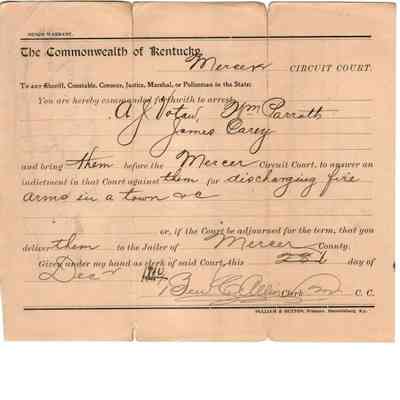 BENCH WARRANT.
The Commonwealth of Kentucky,
Mercer CIRCUIT COURT.
To any Sheriff, Constable, Coroner, Justice, Marshal, or Policeman in the State:
You are hereby commanded forthwith to arrest
A J Votaw, Wm Parrott
James Carey
and bring them before the Mercer Circuit Court, to answer an
indictment in that Court against them for discharging fire
arms in a town &c
or, if the Court be adjourned for the term, that you
deliver them to the Jailer of Mercer County.
Given under my hand as clerk of said Court, this day of
Dec
Ben C. Allen Clerk M C. C.